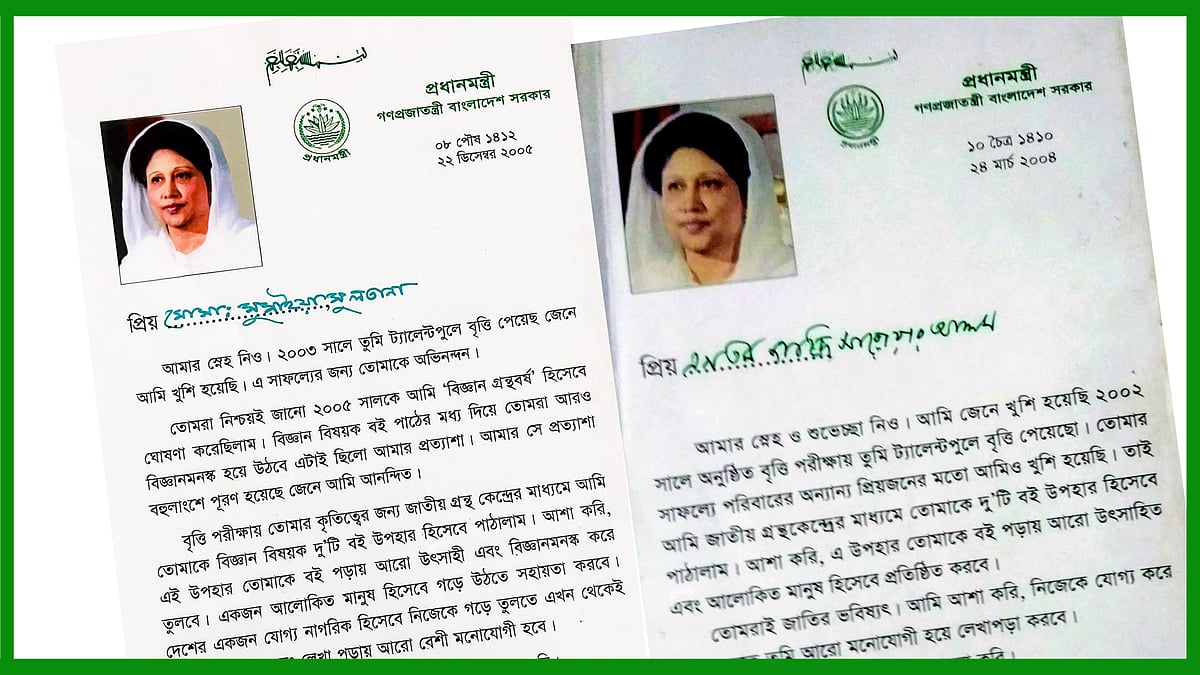 প্রধানমন্ত্রী
গণপ্রজাতন্ত্রী বাংলাদেশ সরকার
প্রধানমন্ত্রী
০৮ পৌষ ১৪১২
২২ ডিসেম্বর ২০০৫
প্রিয় মোসাঃ সুমাইয়া সুলতানা
আমার স্নেহ নিও। ২০০৩ সালে তুমি ট্যালেন্টপুলে বৃত্তি পেয়েছ জেনে
আমি খুশি হয়েছি। এ সাফল্যের জন্য তোমাকে অভিনন্দন।
তোমরা নিশ্চয়ই জানো ২০০৫ সালকে আমি ‘বিজ্ঞান গ্রন্থবর্ষ’ হিসেবে
ঘোষণা করেছিলাম। বিজ্ঞান বিষয়ক বই পাঠের মধ্য দিয়ে তোমরা আরও
বিজ্ঞানমনস্ক হয়ে উঠবে এটাই ছিলো আমার প্রত্যাশা। আমার সে প্রত্যাশা
বহুলাংশে পূরণ হয়েছে জেনে আমি আনন্দিত।
বৃত্তি পরীক্ষায় তোমার কৃতিত্বের জন্য জাতীয় গ্রন্থ কেন্দ্রের মাধ্যমে আমি
তোমাকে বিজ্ঞান বিষয়ক দু'টি বই উপহার হিসেবে পাঠালাম। আশা করি,
এই উপহার তোমাকে বই পড়ায় আরো উৎসাহী এবং বিজ্ঞানমনস্ক করে
তুলবে। একজন আলোকিত মানুষ হিসেবে গড়ে উঠতে সহায়তা করবে।
দেশের একজন যোগ্য নাগরিক হিসেবে নিজেকে গড়ে তুলতে এখন থেকেই
লেখা পড়ায় আরো বেশী মনোযোগী হবে।
প্রধানমন্ত্রী
গণপ্রজাতন্ত্রী বাংলাদেশ সরকার
প্রধানমন্ত্রী
১০ চৈত্র ১৪১০
২৪ মার্চ ২০০৪
প্রিয়
আমার স্নেহ ও শুভেচ্ছা নিও। আমি জেনে খুশি হয়েছি ২০০২
সালে অনুষ্ঠিত বৃত্তি পরীক্ষায় তুমি ট্যালেন্টপুলে বৃত্তি পেয়েছো। তোমার
সাফল্যে পরিবারের অন্যান্য প্রিয়জনের মতো আমিও খুশি হয়েছি। তাই
আমি জাতীয় গ্রন্থকেন্দ্রের মাধ্যমে তোমাকে দু'টি বই উপহার হিসেবে
পাঠালাম। আশা করি, এ উপহার তোমাকে বই পড়ায় আরো উৎসাহিত
এবং আলোকিত মানুষ হিসেবে প্রতিষ্ঠিত করবে।
তোমরাই জাতির ভবিষ্যৎ। আমি আশা করি, নিজেকে যোগ্য করে
তুমি আরো মনোযোগী হয়ে লেখাপড়া করবে।
করি।